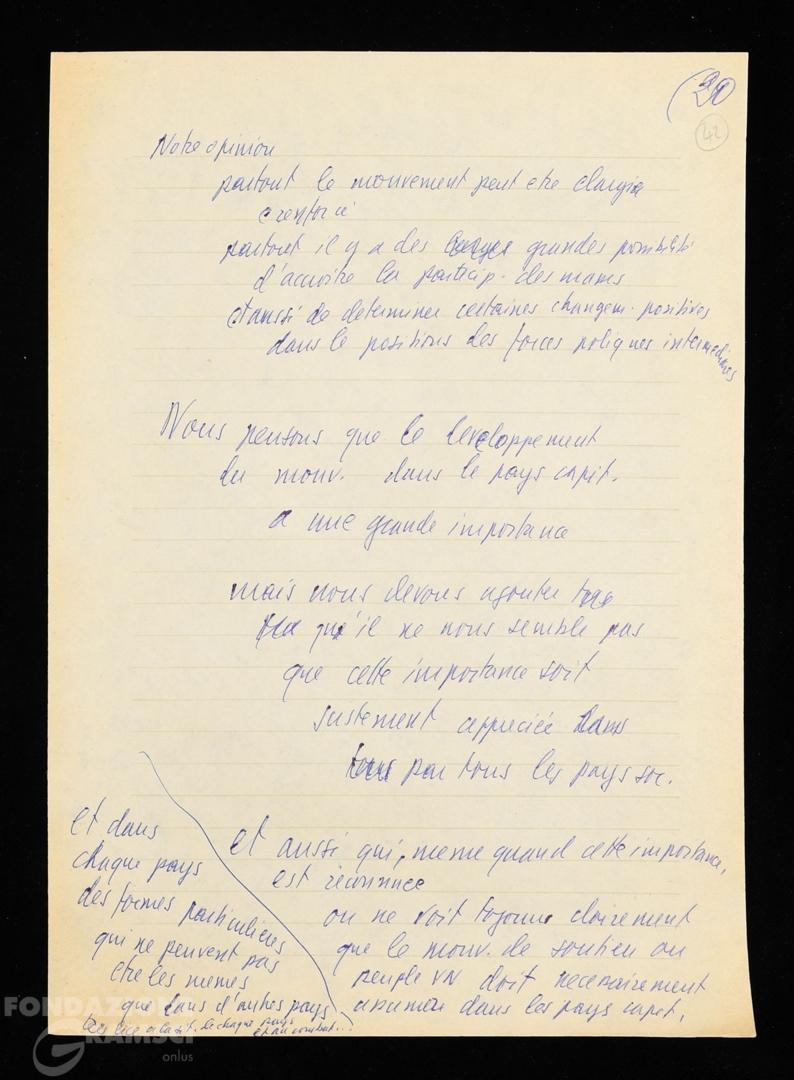 (20
42
Notre opinion
partout le mouvement peut etre elargie
e renforcé
partout il y a des grandes possibilité
d'accroitre la particip. des masses
et aussi de determiner certaines changem. positives
dans le positions des forces poliques intermediaires
Nous pensons que le developpement
du mouv. dans le pays capit.
a une grande importance
mais nous devons agouter
qu'il ne nous semble pas
que cette importance soit
justement appreciée dans
par tous les pays soc.
et aussi qui, meme quand cette importance,
est reconnue
on ne voit toujours clairement
que le mouv. de soutien au
peuple VN doit necessairement
assumere dans les pays capit,
et dans
chaque pays
des formes particulieres
qui ne peuvent pas
etre les memes
que dans d'autres pays
de chaque pays
et au combat...
FONDAZIONE
GRAMSCI
onlus